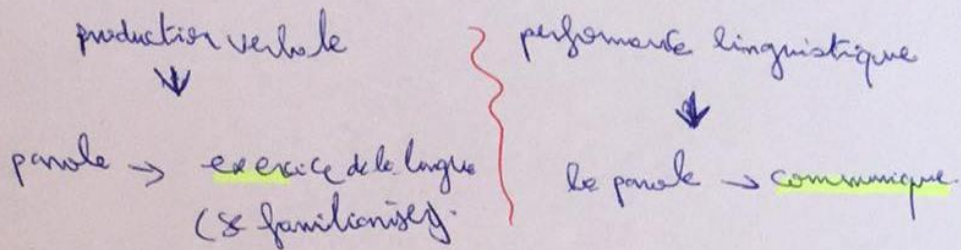 production verbale
parole → exercice de la langue
(se familiariser).
performance linguistique
la parole → communique.